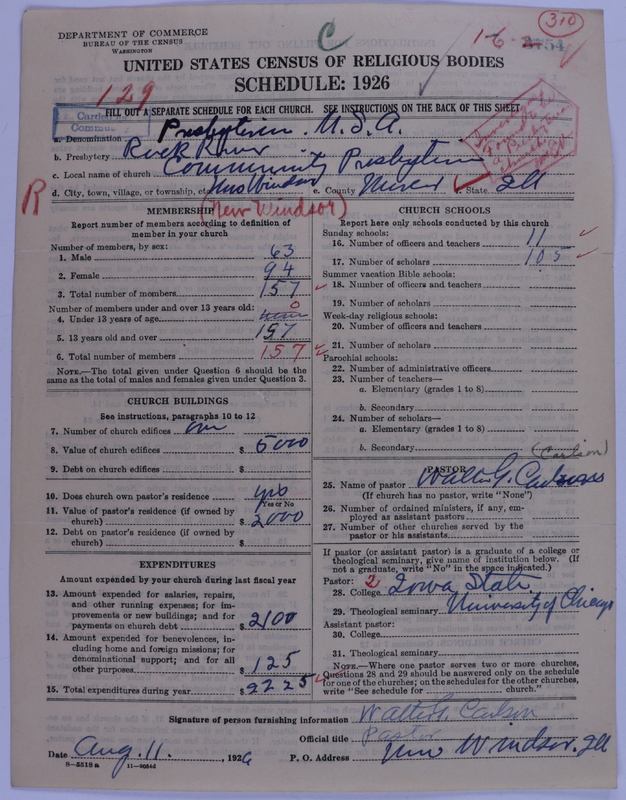 DEPARTMENT OF COMMERCE
BUREAU OF THE CENSUS
WASHINGTON
C
1-6
310
54
UNITED STATES CENSUS OF RELIGIOUS BODIES
SCHEDULE: 1926
129
FILL OUT A SEPARATE SCHEDULE FOR EACH CHURCH. SEE INSTRUCTIONS ON THE BACK OF THIS SHEET
a. Denomination Presbyterian. U.S.A.
b. Presbytery Rock River
c. Local name of church Community Presbyterian
d. City, town, village, or township, etc. New Windsor e. County Mercer f. State Ill
R
(New Windsor)
MEMBERSHIP
Report number of members according to definition of
member in your church
Number of members, by sex:
1. Male 63
2. Female 94
3. Total number of members 157
Number of members under and over 13 years old:
4. Under 13 years of age 0
5. 13 years old and over 157
6. Total number of members 157
NOTE.—The total given under Question 6 should be
same as the total of males and females given under Question 3.
CHURCH BUILDINGS
See instructions, paragraphs 10 to 12
7. Number of church edifices one
8. Value of church edifices $ 5000
9. Debt on church edifices $
10. Does church own pastor's residence yes
Yes or No
11. Value of pastor's residence (if owned by
church) $ 2000
12. Debt on pastor's residence (if owned by
church) $
EXPENDITURES
Amount expended by your church during last fiscal year
13. Amount expended for salaries, repairs,
and other running expenses; for im-
provements or new buildings; and for
payments on church debt $ 2100
14. Amount expended for benevolences, in-
cluding home and foreign missions; for
denominational support; and for all
other purposes $ 125
15. Total expenditures during year $ 2225
CHURCH SCHOOLS
Report here only schools conducted by this church
Sunday schools:
16. Number of officers and teachers 11
17. Number of scholars 105
Summer vacation Bible schools:
18. Number of officers and teachers
19. Number of scholars
Week-day religious schools:
20. Number of officers and teachers
21. Number of scholars
Parochial schools:
22. Number of administrative officers
23. Number of teachers—
a. Elementary (grades 1 to 8)
b. Secondary
24. Number of scholars—
a. Elementary (grades 1 to 8)
b. Secondary
(Carlson)
PASTOR
25. Name of pastor Walter G. Carlson
(If church has no pastor, write "None")
26. Number of ordained ministers, if any, em-
ployed as assistant pastors
27. Number of other churches served by the
pastor or his assistants
If pastor (or assistant pastor) is a graduate of a college or
theological seminary, give name of institution below. (If
not a graduate, write "No" in the space indicated.)
Pastor: 2
28. College Iowa State
29. Theological seminary University of Chicago
Assistant pastor:
30. College
31. Theological seminary
NOTE.—Where one pastor serves two or more churches,
Questions 28 and 29 should be answered only on the schedule
for one of the churches; on the schedules for the other churches,
write "See schedule for church."
Signature of person furnishing information Walter G. Carlson
Official title Pastor
Date Aug. 11., 1926 P. O. Address New Windsor. Ill
8-5518a 11-9054d